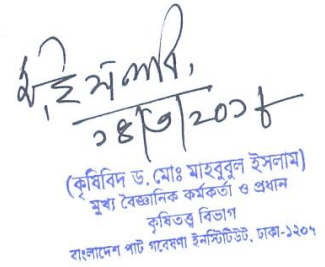 ১৪/৩/২০১৮
(কৃষিবিদ ড. মোঃ মাহবুবুল ইসলাম)
মুখ্য বৈজ্ঞানিক কর্মকর্তা ও প্রধান
কৃষিতত্ত্ব বিভাগ
বাংলাদেশ পাট গবেষণা ইনস্টিটিউট, ঢাকা-১২০৭